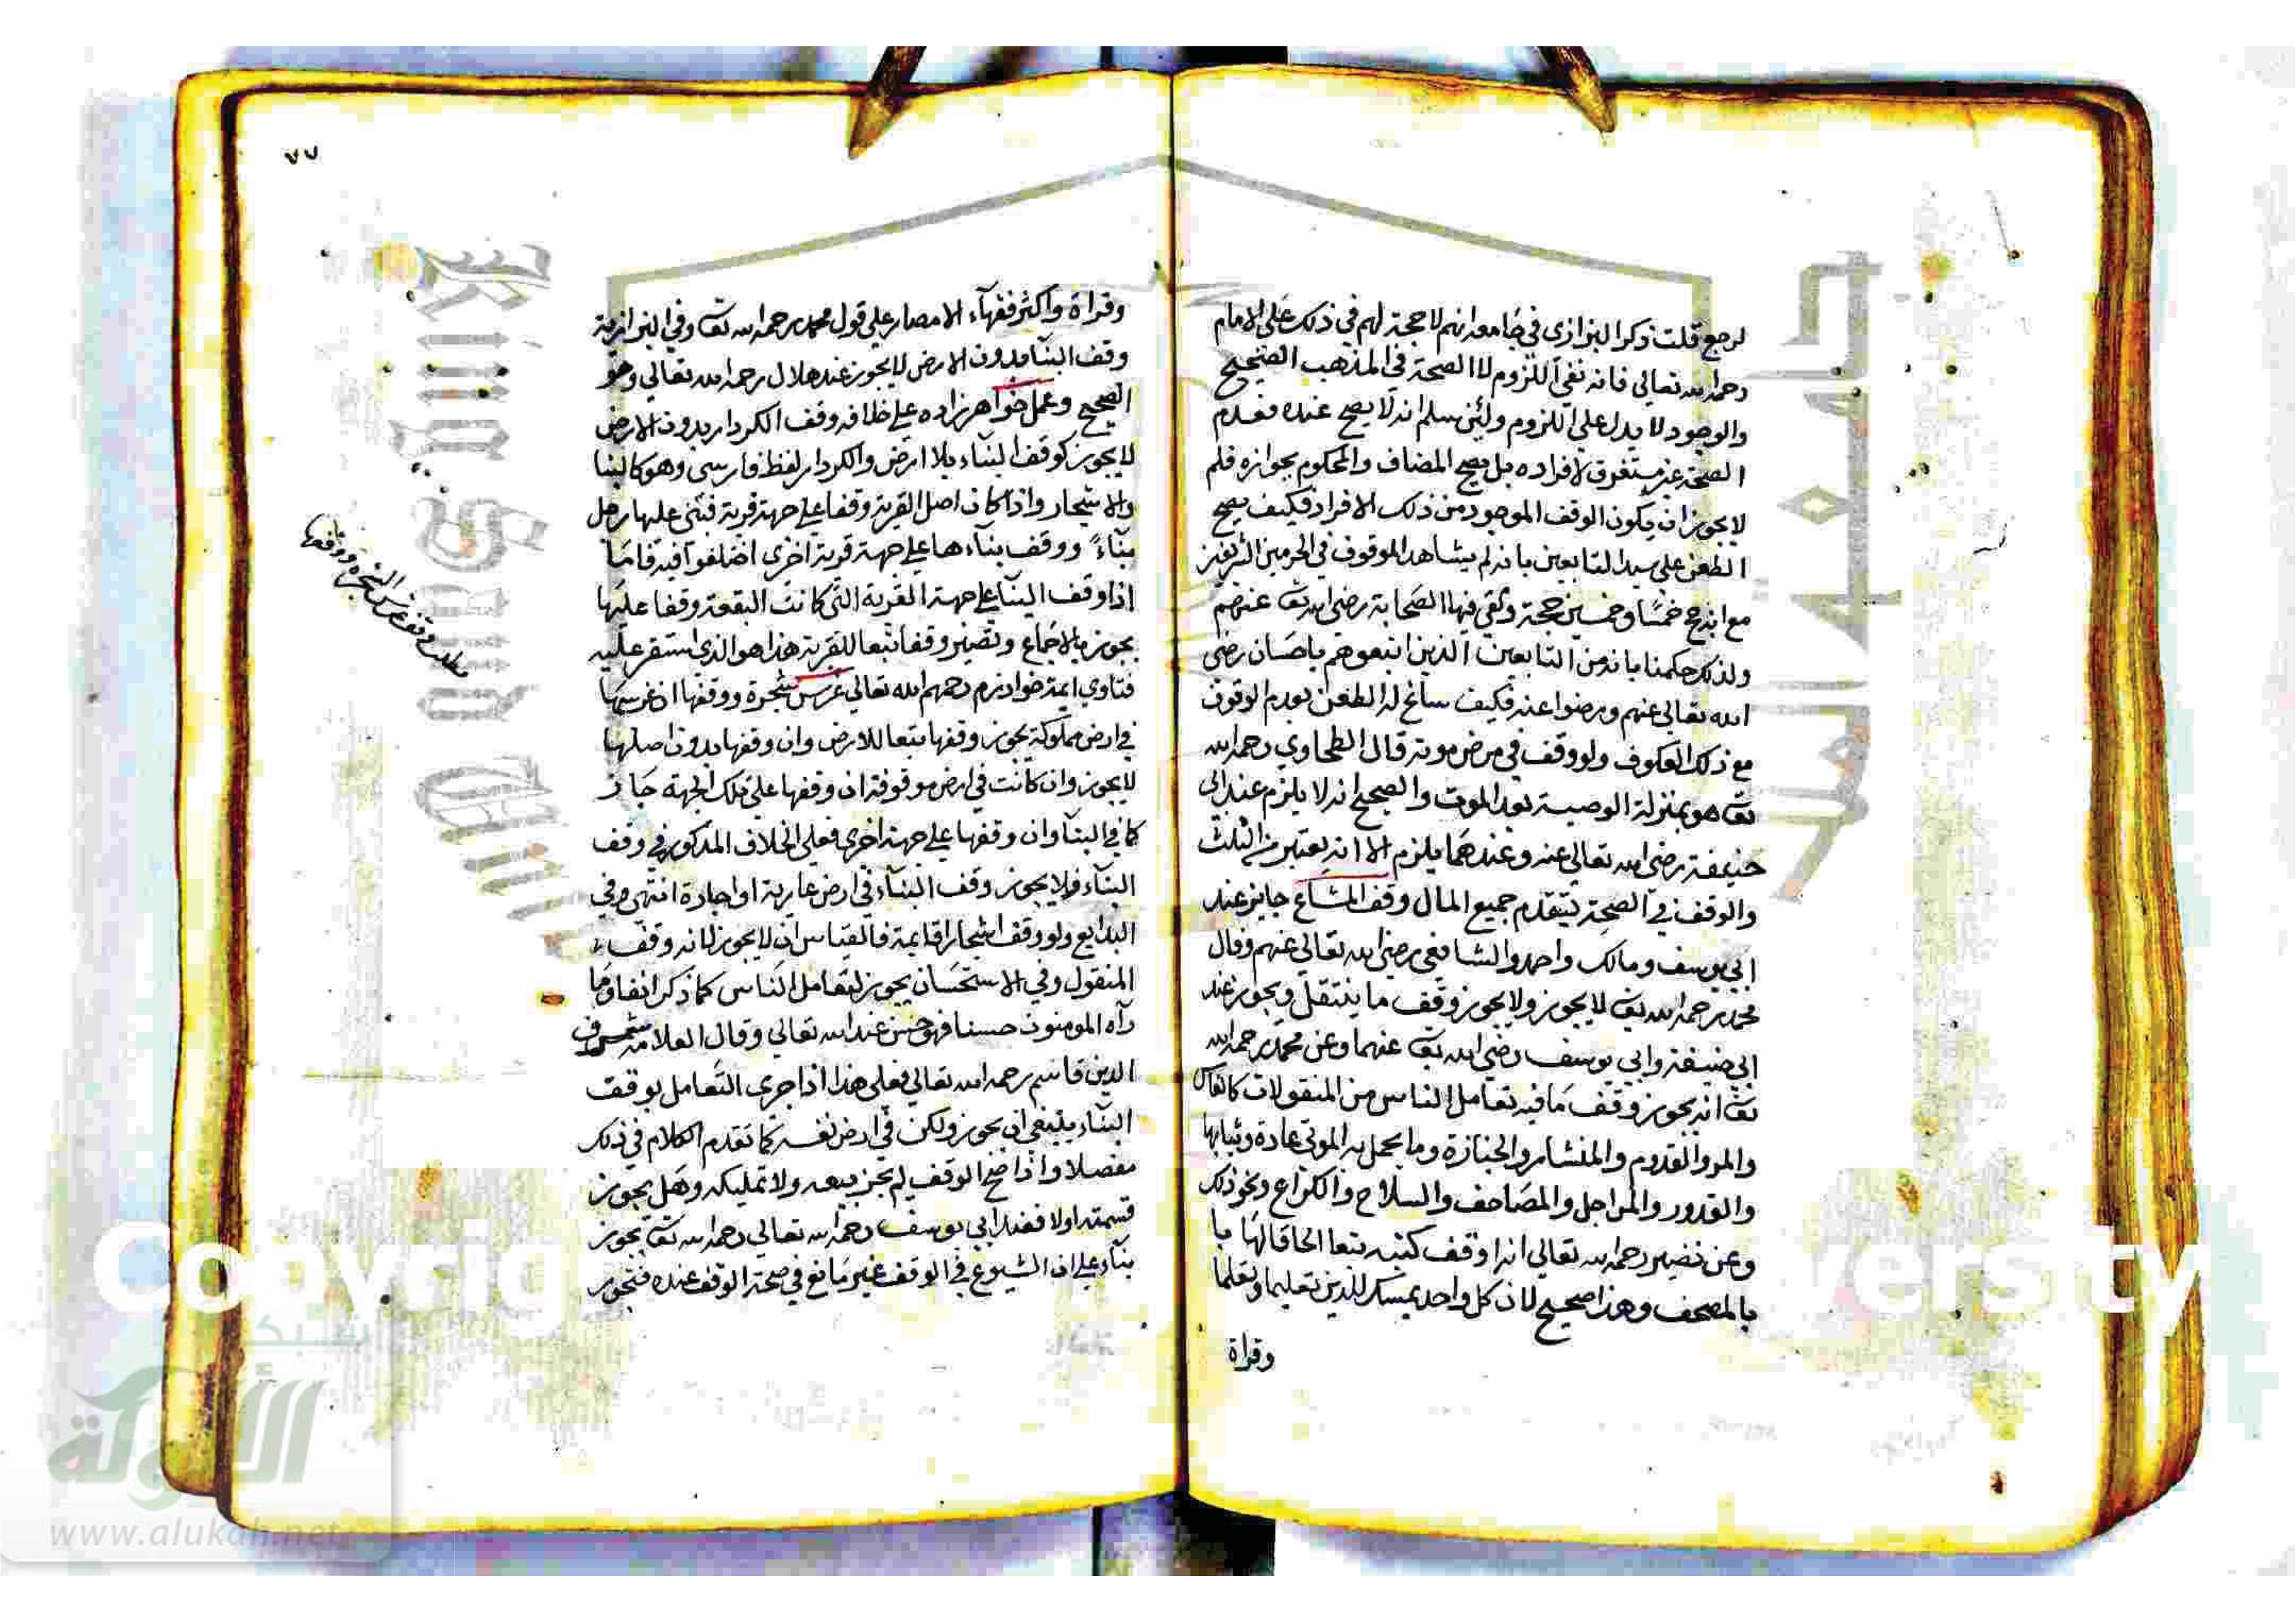 لرجع قلت ذكر البزازي في جامعه انهم لا حجة لهم في ذلك على الامام
رحمه الله تعالى فانه نفي اللزوم لا الصحة في المذهب الصحيح
والوجود لا يدل على اللزوم ولئن سلم انه لا يصح عنده فعدم
الصحة غير مستغرق لافراده بل يصح المضاف والمحكوم بجوازه فلم
لا يجوز ان يكون الوقف الموجود من ذلك الافراد فكيف يصح
الطعن على سيد التابعين بانه لم يشاهد الموقوف في الحرمين الشريفين
مع انه حج خمسا وخمسين حجة ولقي فيها الصحابة رضي الله تع عنهم
ولذلك حكمنا بانه من التابعين الذين اتبعوهم باحسان رضي
الله تعالى عنهم ورضوا عنه فكيف ساغ له الطعن بعدم الوقوف
مع ذلك العكوف ولو وقف في مرض موته قال الطحاوي رحمه الله
تع هو بمنزلة الوصية بعد الموت والصحيح انه لا يلزم عند ابي
حنيفة رضي الله تعالى عنه وعندهما يلزم الا انه يعتبر من الثلث
والوقف في الصحة يتقدم جميع المال وقف المشاع جايز عند
ابي يوسف ومالك واحمد والشافعي رضي الله تعالى عنهم وقال
محمد رحمه الله تع لا يجوز ولا يجوز وقف ما ينتقل ويجوز عند
ابي حنيفة وابي يوسف رضي الله تع عنهما وعن محمد رحمه الله
تع انه يجوز وقف ما فيه تعامل الناس من المنقولات كالفاس
والمر والقدوم والمنشار والجنازة وما يحمل به الموتى عادة وثيابها
والقدور والمراجل والمصاحف والسلاح والكراع ونحو ذلك
وعن نصير رحمه الله تعالى انه وقف كتبه تبعا الحاقا لها با
بالمصحف وهذا صحيح لان كل واحد يمسك للدين تعليما وتعلما
وقراة
٧٧
وقراة واكثر فقهآء الامصار على قول محمد رحمه الله تع وفي البزازية
وقف البنا بدون الارض لا يجوز عند هلال رحمه الله تعالى وهو
الصحيح وعمل خواهر زاده على خلافه وقف الكردار بدون الارض
لا يجوز كوقف البنآء بلا ارض والكردار لفظ فارسي وهو كالبنا
والاشجار واذا كان اصل القرية وقفا على جهة قربة فبنى عليها رجل
بنآءً ووقف بنآءها على جهة قربة اخرى اختلفوا فيه فاما
اذا وقف البنآ على جهة القربة التي كانت البقعة وقفا عليها
يجوز بالاجماع وتصير وقفا تبعا للقرية هذا هو الذي استقر عليه
فتاوي ايمة خوارزم رحمهم الله تعالى غرس شجرة ووقفها ان غرسها
في ارض مملوكة يجوز وقفها تبعا للارض وان وقفها بدون اصلها
لا يجوز وان كانت في ارض موقوفة ان وقفها على تلك الجهة جاز
كما في البنآ وان وقفها على جهة اخرى فعلى الخلاف المذكور في وقف
البنآء ولا يجوز وقف البنآء في ارض عارية او اجارة انتهى وفي
البدايع ولو وقف اشجارا قايمة فالقياس ان لا يجوز لانه وقف
المنقول وفي الاستحسان يجوز لتعامل الناس كما ذكر انفا وما
رآه المومنون حسنا فهو حسن عند الله تعالى وقال العلامة شرف
الدين قاسم رحمه الله تعالى فعلى هذا اذا جرى التعامل بوقف
البنآء ينبغي ان يجوز ولكن في ارض نفسه كما تقدم الكلام في ذلك
مفصلا واذا صح الوقف لم يجز بيعه ولا تمليكه وهل يجوز
قسمته اولا فعند ابي يوسف رحمه الله تعالى رحمه الله تع يجوز
بنآء على ان الشيوع في الوقف غير مانع في صحة الوقف عنده فتجوز
غرس الشجرة ووقفها
King Saud
جامعة الملك
Copyrig
ersity
شبكة
الألوكة
www.alukah.net